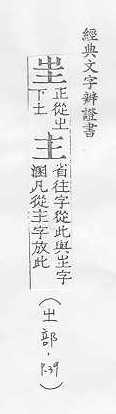 經典文字辨證書
㞷
正從㞢
下土
主
省往字從此與㞢字
溷凡從主字放此
(㞢部，P.39)